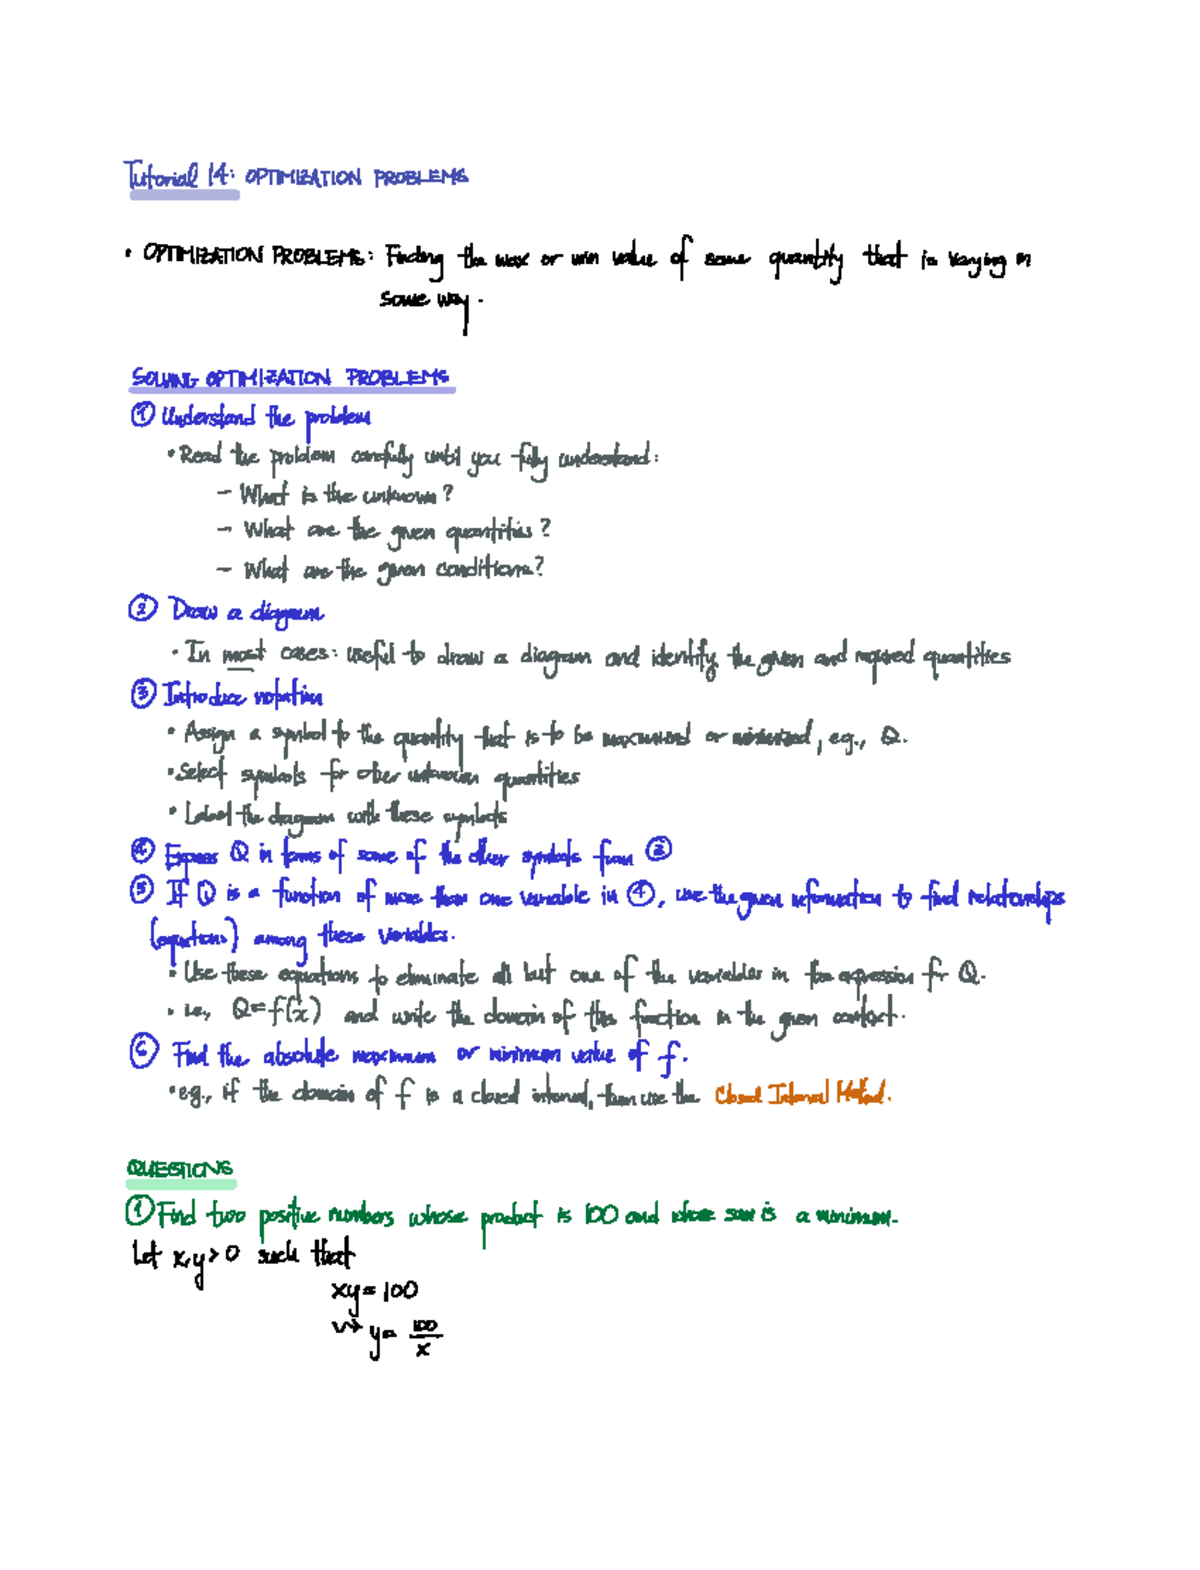 Tutorial 14: OPTIMIZATION PROBLEMS
• OPTIMIZATION PROBLEMS: Finding the max or min value of some quantity that is varying in
some way.
SOLVING OPTIMIZATION PROBLEMS
① Understand the problem
• Read the problem carefully until you fully understand:
– What is the unknown?
– What are the given quantities?
– What are the given conditions?
② Draw a diagram
• In most cases: useful to draw a diagram and identify the given and required quantities
③ Introduce notation
• Assign a symbol to the quantity that is to be maximized or minimized, e.g., Q.
• Select symbols for other unknown quantities
• Label the diagram with these symbols
④ Express Q in terms of some of the other symbols from ③
⑤ If Q is a function of more than one variable in ④, use the given information to find relationships
(equations) among these variables.
• Use these equations to eliminate all but one of the variables in the expression for Q.
• i.e., Q=f(x) and write the domain of this function in the given context.
⑥ Find the absolute maximum or minimum value of f.
• e.g., if the domain of f is a closed interval, then use the Closed Interval Method.
QUESTIONS
① Find two positive numbers whose product is 100 and whose sum is a minimum.
Let x,y>0 such that
xy=100
↪ y= 100/x